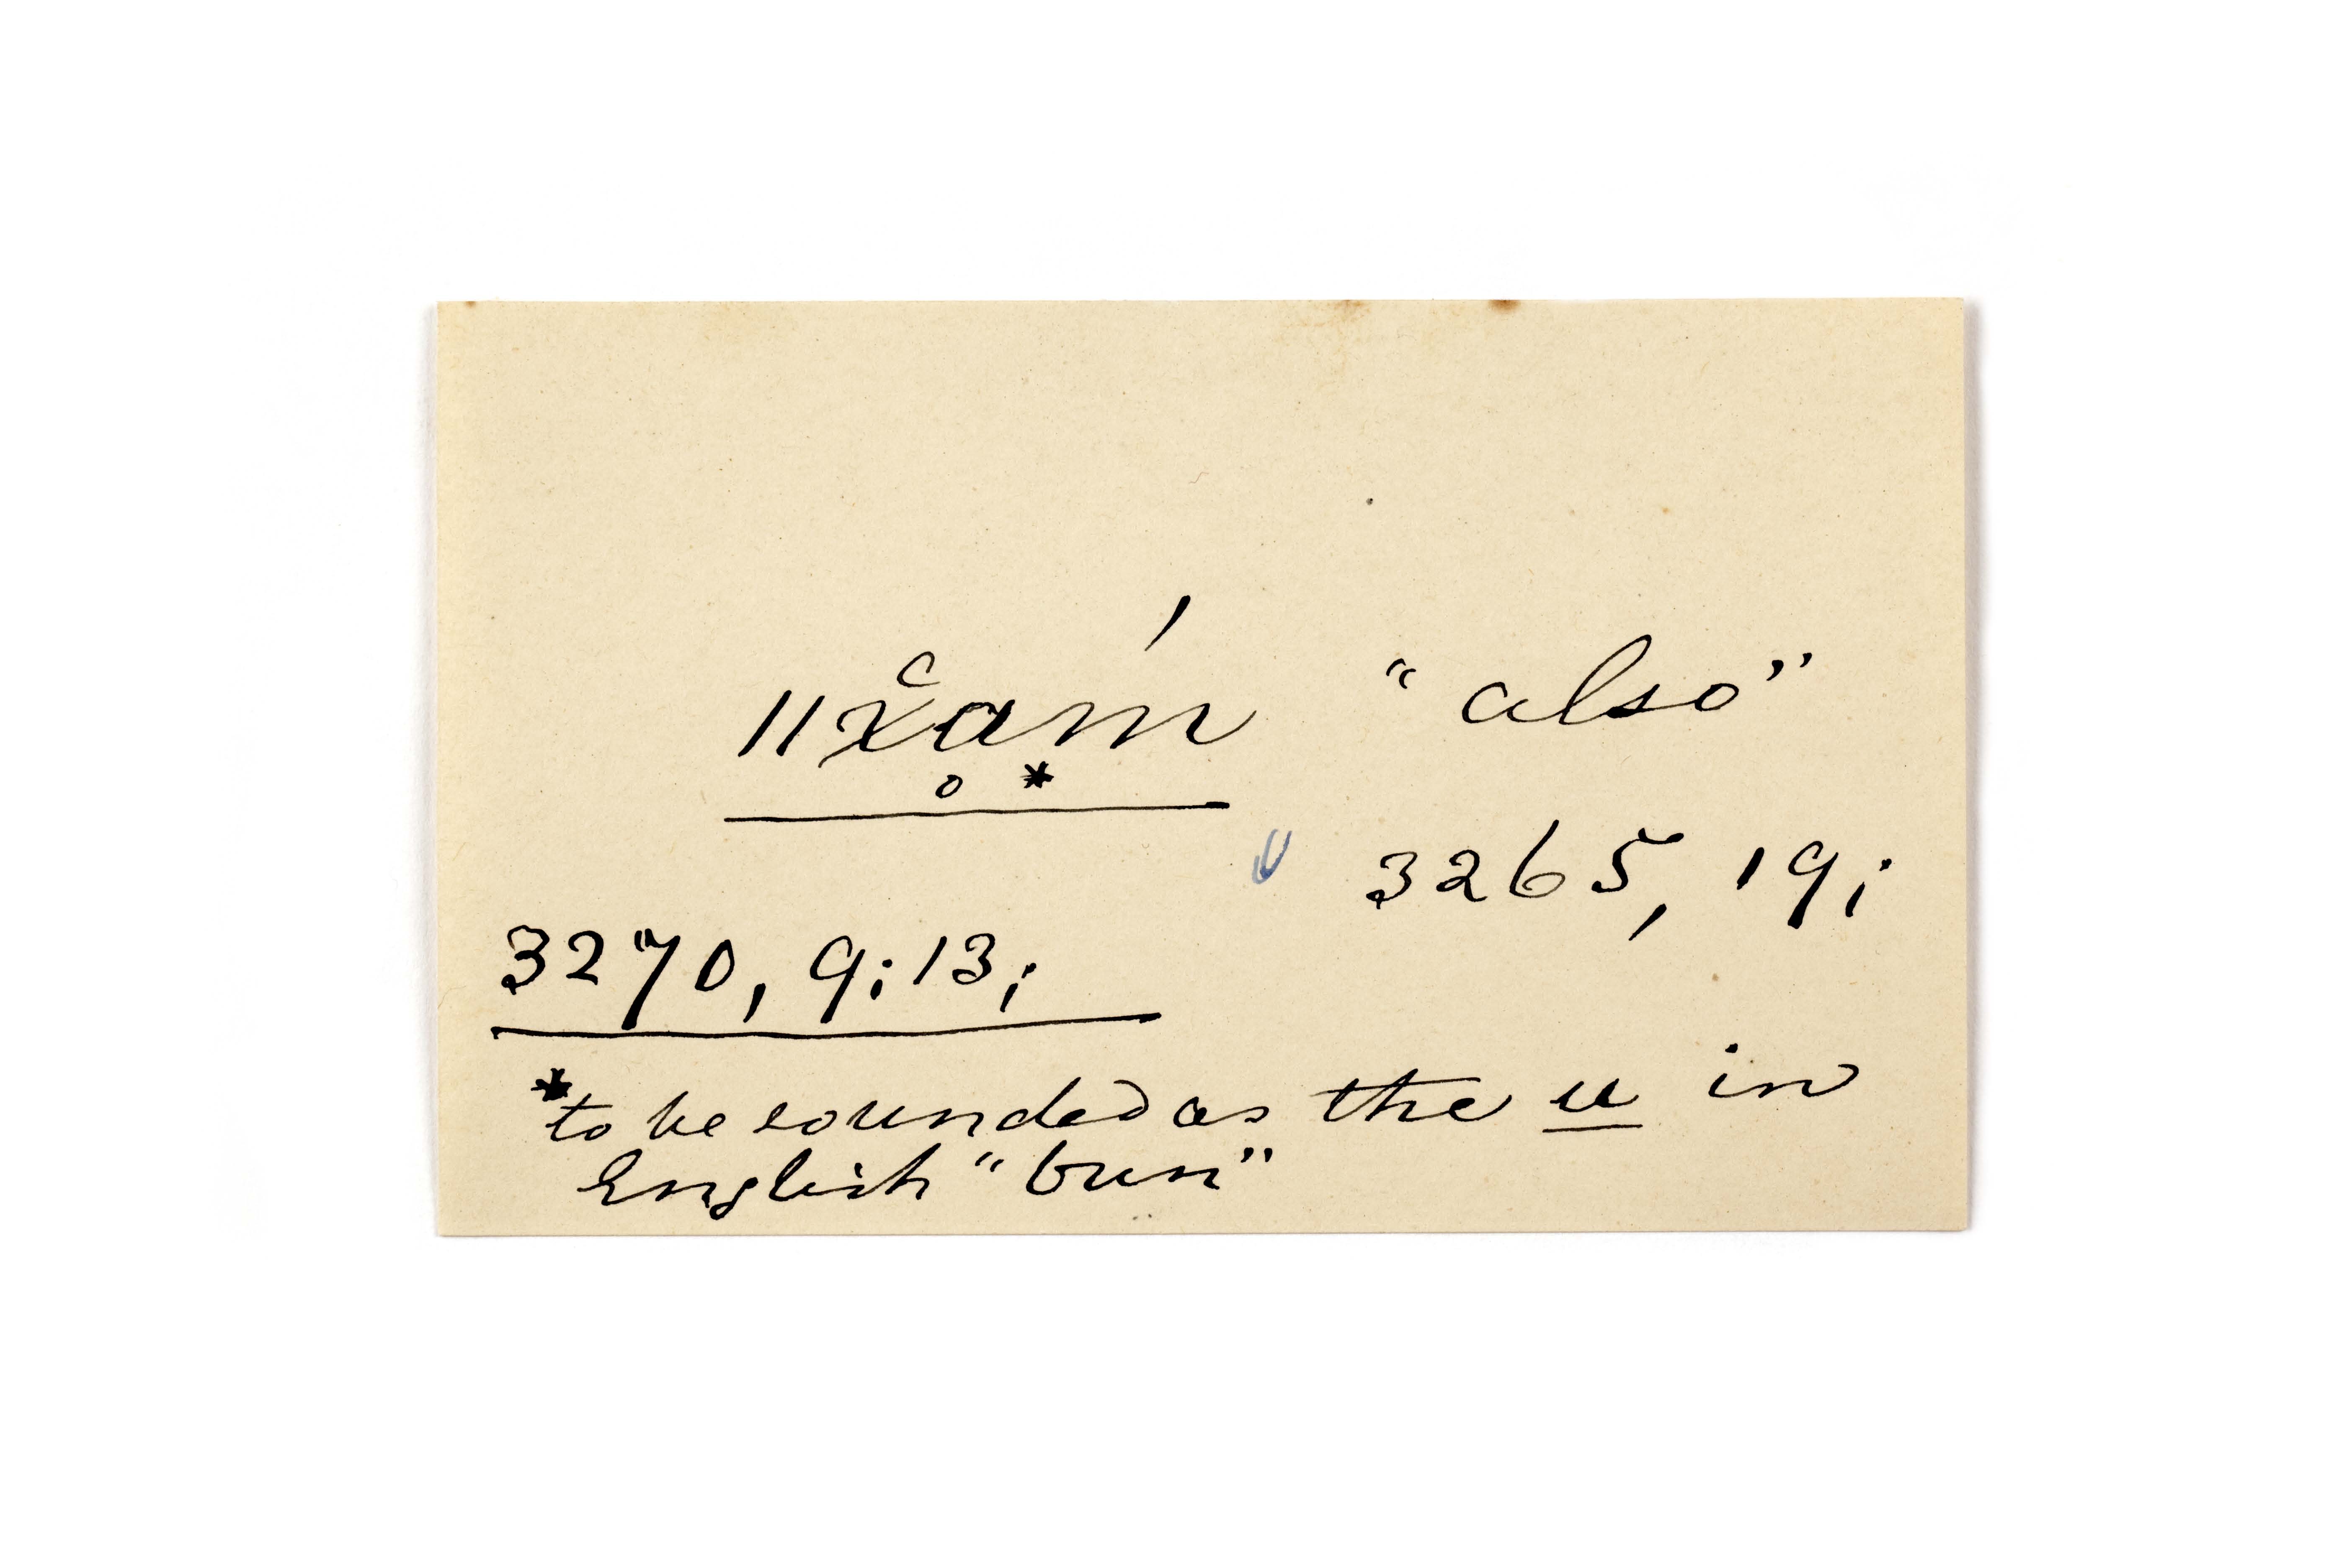 ǁχ̆ḁḿ "also"
*
3265, 19;
3270, 9; 13;
*to be sounded as the u in
English "bun"